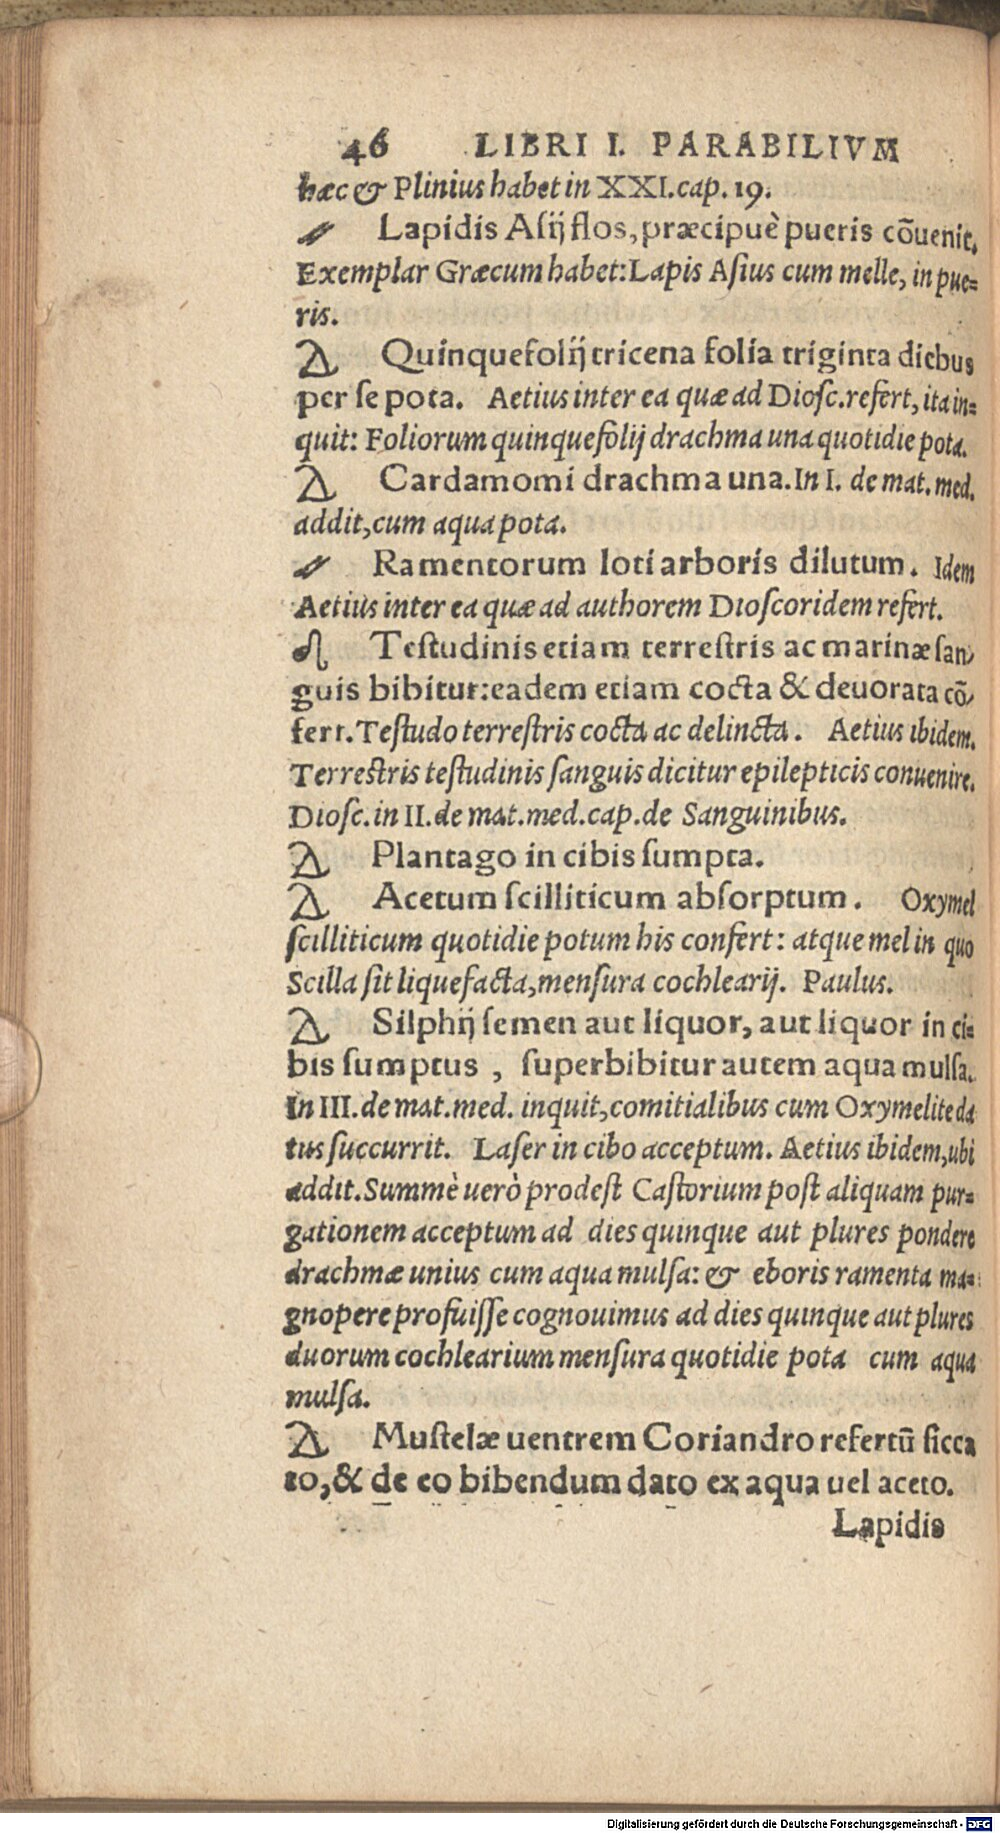 46 LIBRI I. PARABILIVM
hæc & Plinius habet in XXI. cap. 19.
Lapidis Asij flos, præcipuè pueris cōuenit.
Exemplar Græcum habet: Lapis Asius cum melle, in pue=
ris.
Quinquefolij tricena folia triginta diebus
per se pota. Aetius inter ea quæ ad Diosc. refert, ita in=
quit: Foliorum quinquefolij drachma una quotidie pota.
Cardamomi drachma una. In I. de mat. med.
addit, cum aqua pota.
Ramentorum loti arboris dilutum. Idem
Aetius inter ea quæ ad authorem Dioscoridem refert.
Testudinis etiam terrestris ac marinæ san-
guis bibitur: eadem etiam cocta & deuorata cō-
fert. Testudo terrestris cocta ac delincta. Aetius ibidem.
Terrestris testudinis sanguis dicitur epilepticis conuenire.
Diosc. in II. de mat. med. cap. de Sanguinibus.
Plantago in cibis sumpta.
Acetum scilliticum absorptum. Oxymel
scilliticum quotidie potum his confert: atque mel in quo
Scilla sit liquefacta, mensura cochlearij. Paulus.
Silphij semen aut liquor, aut liquor in ci=
bis sumptus, superbibitur autem aqua mulsa.
In III. de mat. med. inquit, comitialibus cum Oxymelite da
tus succurrit. Laser in cibo acceptum. Aetius ibidem, ubi
addit. Summè uerò prodest Castorium post aliquam pur=
gationem acceptum ad dies quinque aut plures pondere
drachmæ unius cum aqua mulsa: & eboris ramenta ma=
gnopere profuisse cognouimus ad dies quinque aut plures
duorum cochlearium mensura quotidie pota cum aqua
mulsa.
Mustelæ uentrem Coriandro refertū sicca
to, & de eo bibendum dato ex aqua uel aceto.
Lapidis
Digitalisierung gefördert durch die Deutsche Forschungsgemeinschaft - DFG